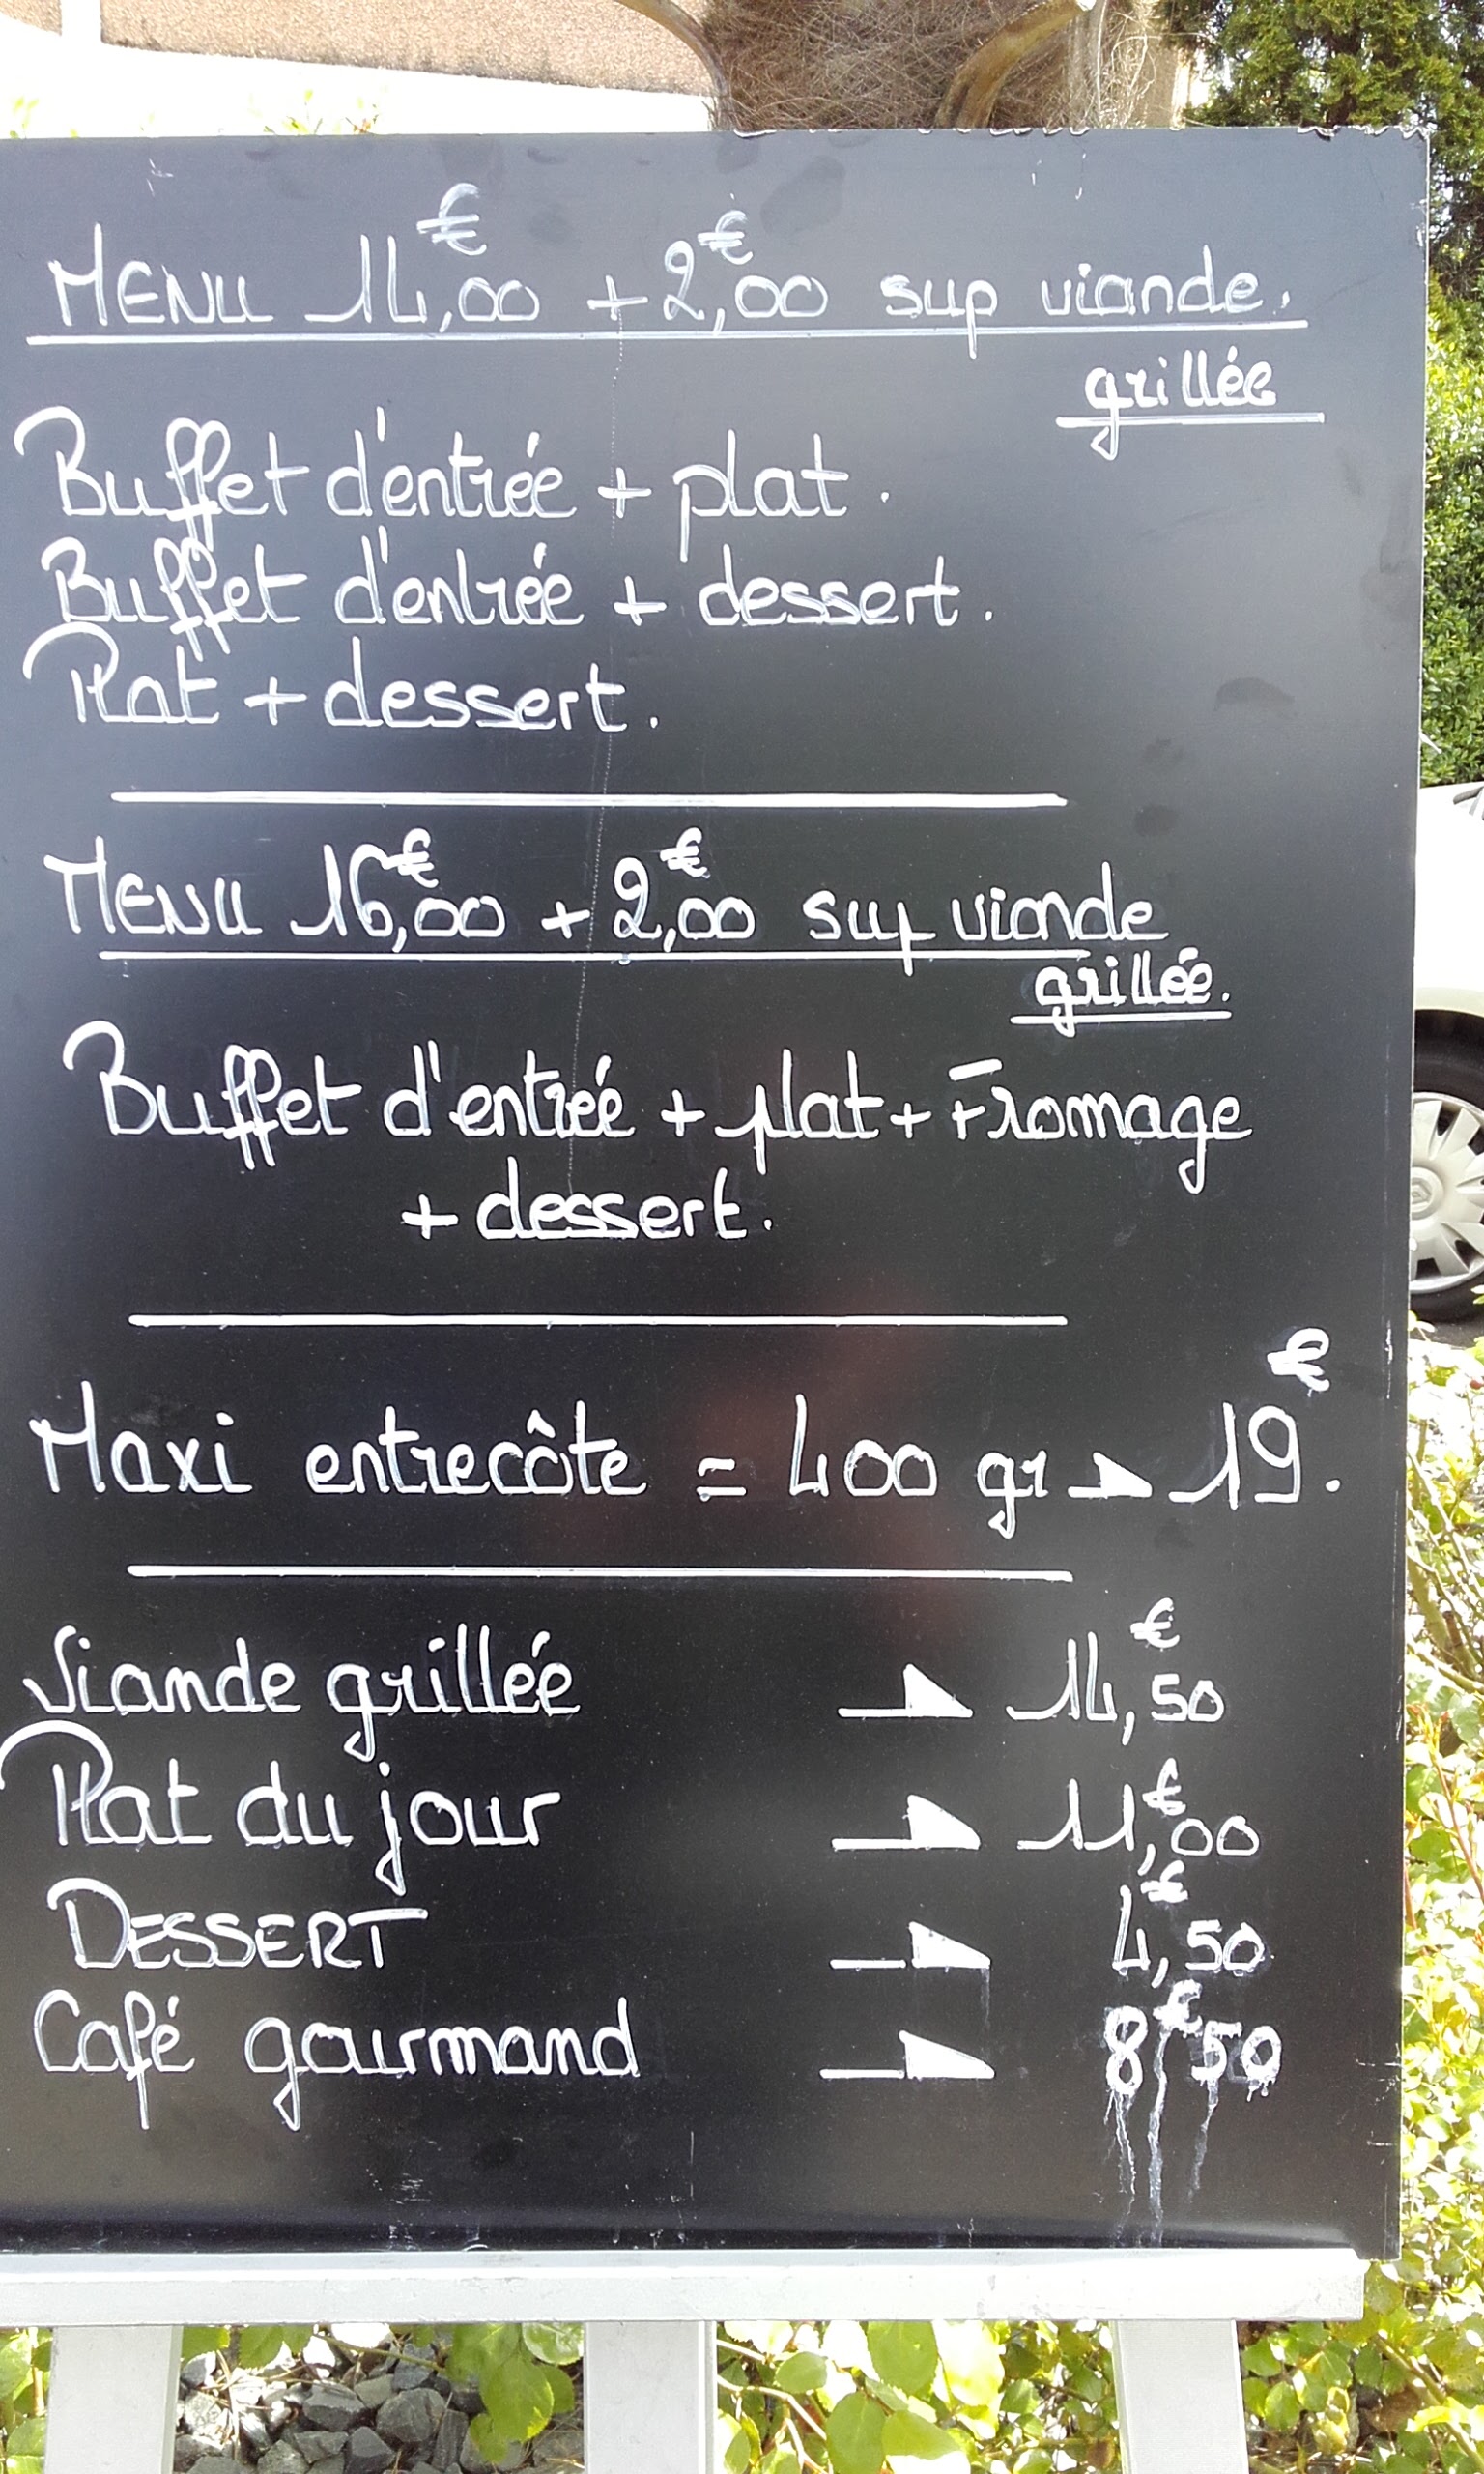 MENU 14,00€ + 2,00€ sup viande.
grillée
Buffet d'entrée + plat.
Buffet d'entrée + dessert.
Plat + dessert.
MENU 16,00€ + 2,00€ sup viande
grillée.
Buffet d'entrée + plat + Fromage
+ dessert.
Maxi entrecôte = 400 gr → 19€.
Viande grillée → 14,50€
Plat du jour → 11,00€
DESSERT → 4,50€
Café gourmand → 8,50€